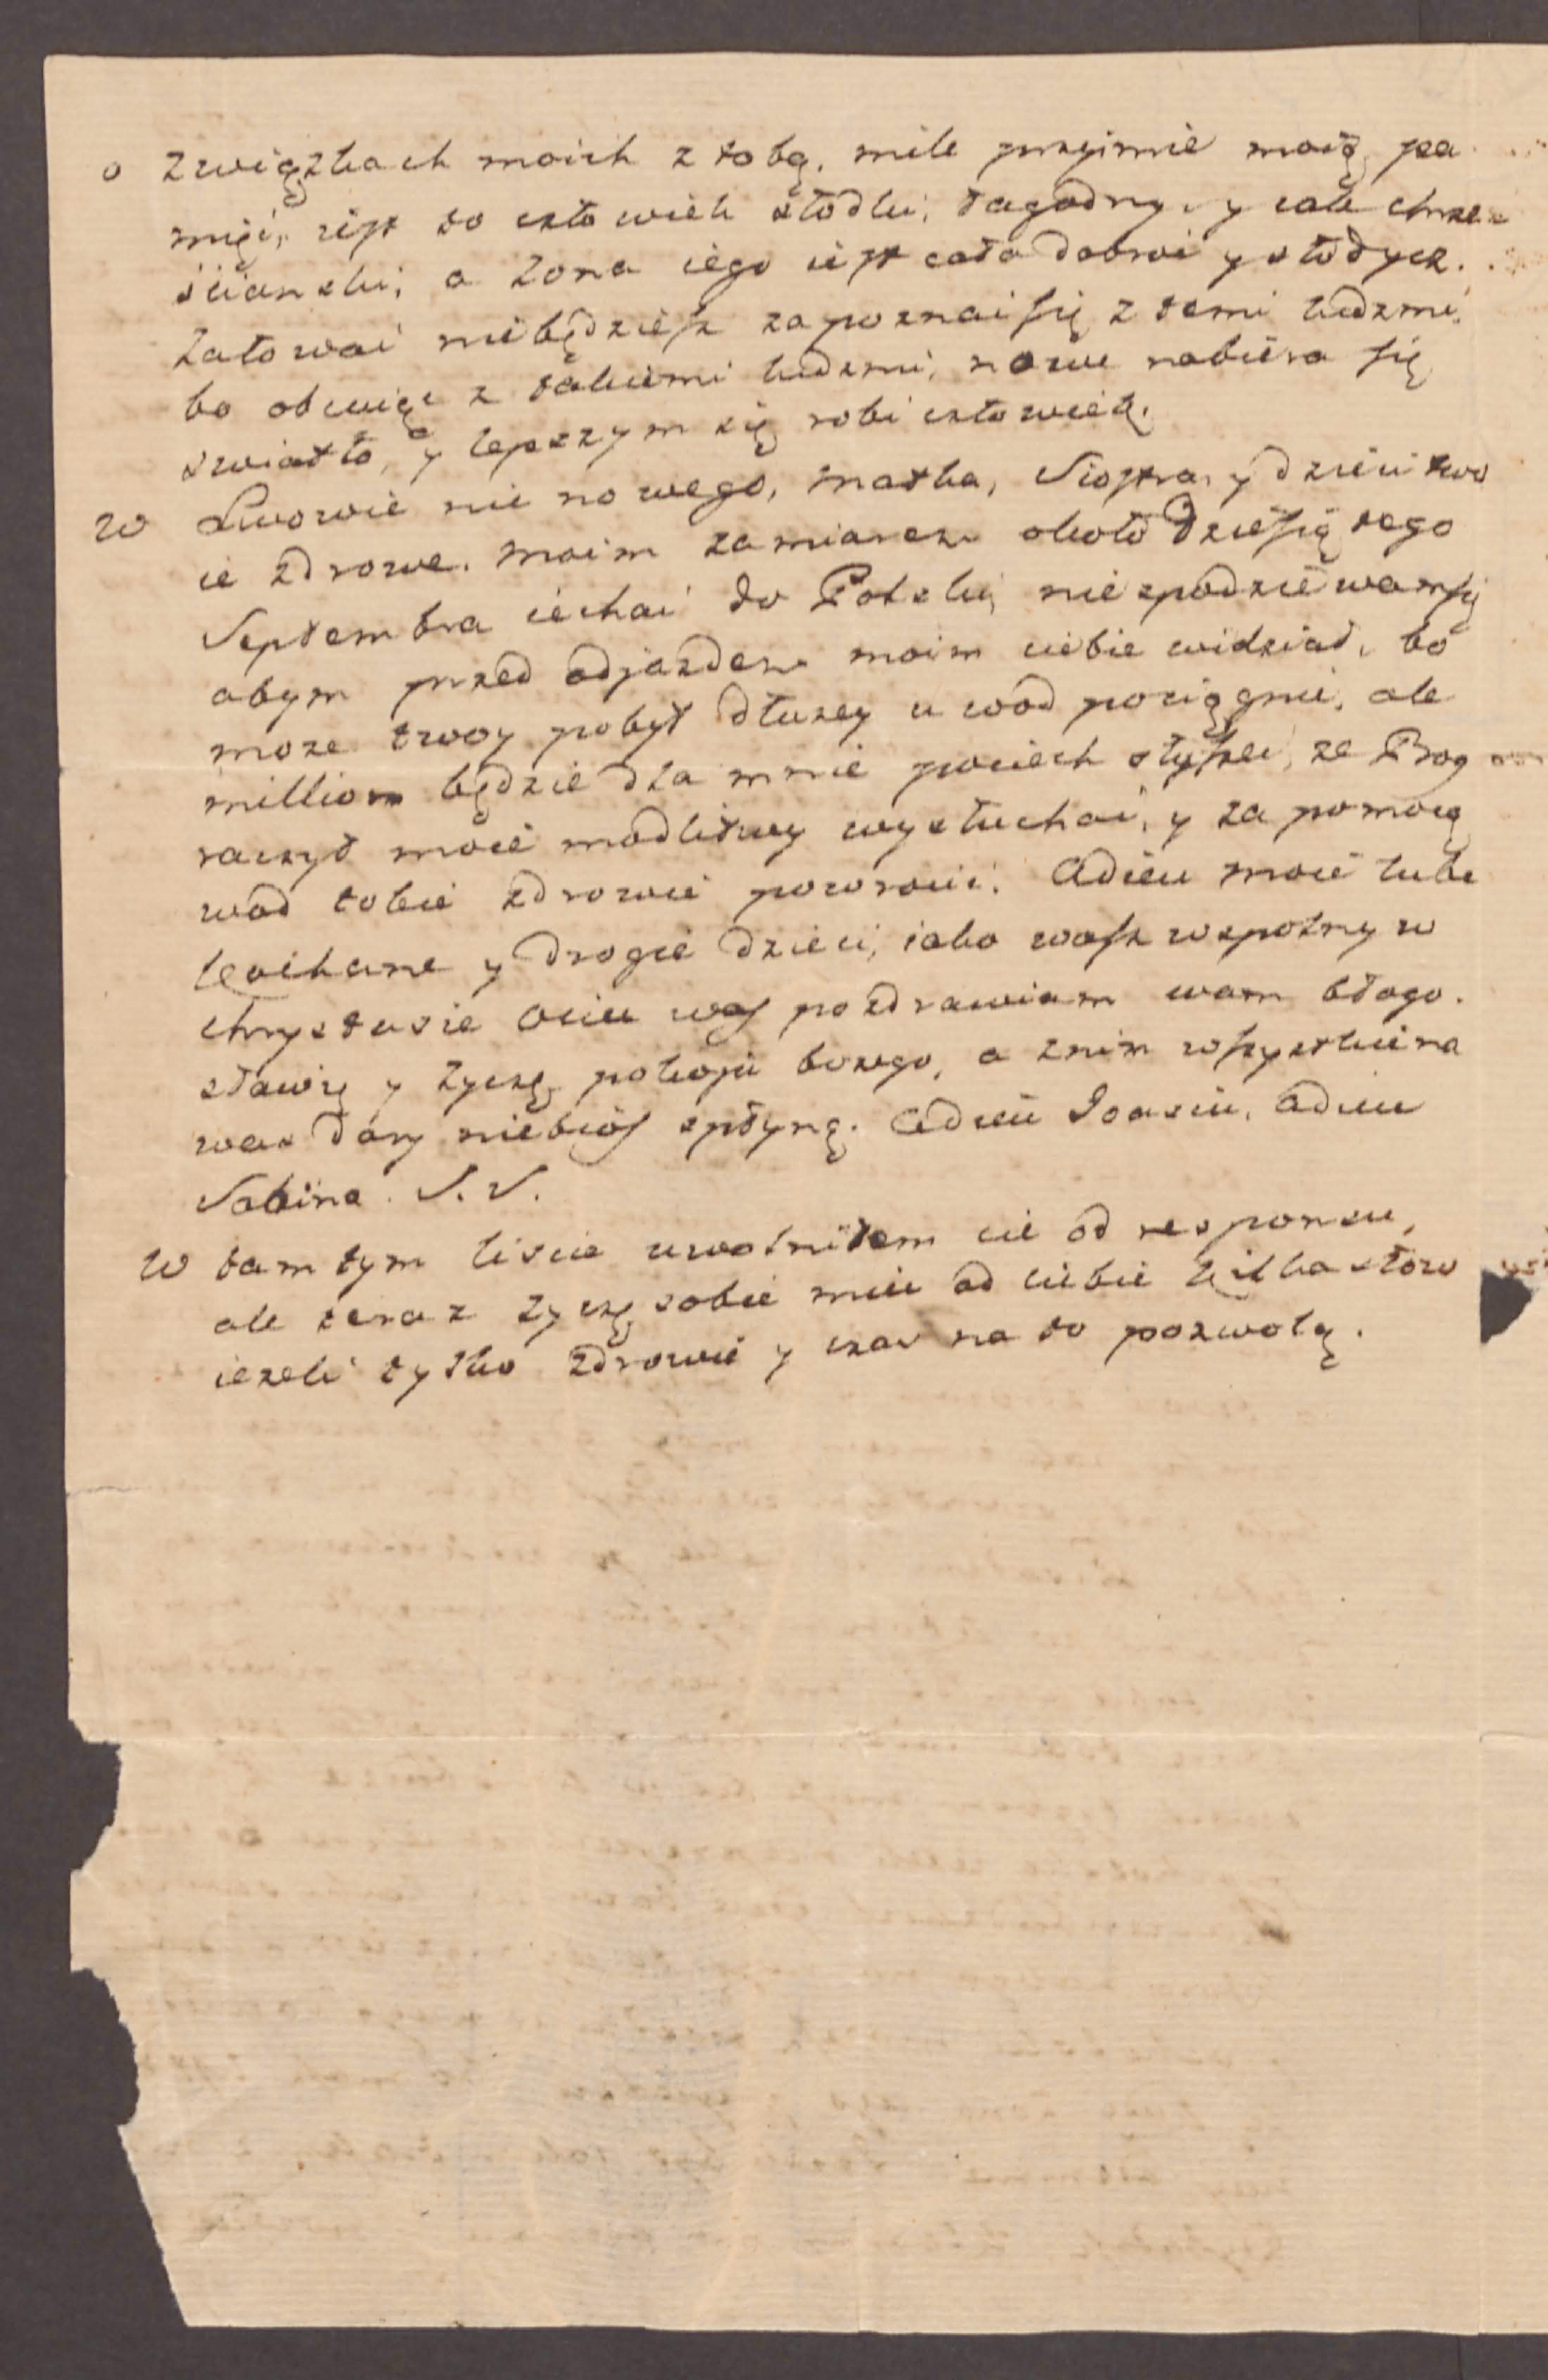 o związkach moich z tobą, mile przyimie moią pa
mięć, iest to człowiek słodki, łagodny, y cale chrze-
ściański, a żona iego iest cała dobroć y słodycz.
żałować niebędziesz zapoznać się z temi ludzmi,
bo obcuiąc z takiemi ludzmi, nowe nabiera się
swiatło, y lepszym się robi człowiek.
W Lwowie nic nowego, matka, Siostra, y dzieci two
ie zdrowe. moim zamiarem około dziesiątego
Septembra iechać do Polski, niespodziewam się
abym przed odjazdem moim ciebie widział, bo
moze twoy pobyt dłuzey u wod pociągnie, ale
million będzie dla mnie pociech słyszeć, ze Bog
raczył moie modlitwy wysłuchać, y za pomocą
wod tobie zdrowie powrocić. Adieu moie lube
kochane y drogie dzieci, iako wasz wspolny w
chrystusie Ociec was pozdrawiam wam błogo.
sławię y życzę pokoju bozego, a znim wszystkie na
was dary niebios spłyną. Adieu Joasiu, adieu
Sabina. S. S.
W tamtym liscie uwolniłem cie od responsu,
ale teraz życzę sobie miec od ciebie kilka słow
iezeli tylko zdrowie y czas na to pozwolą.